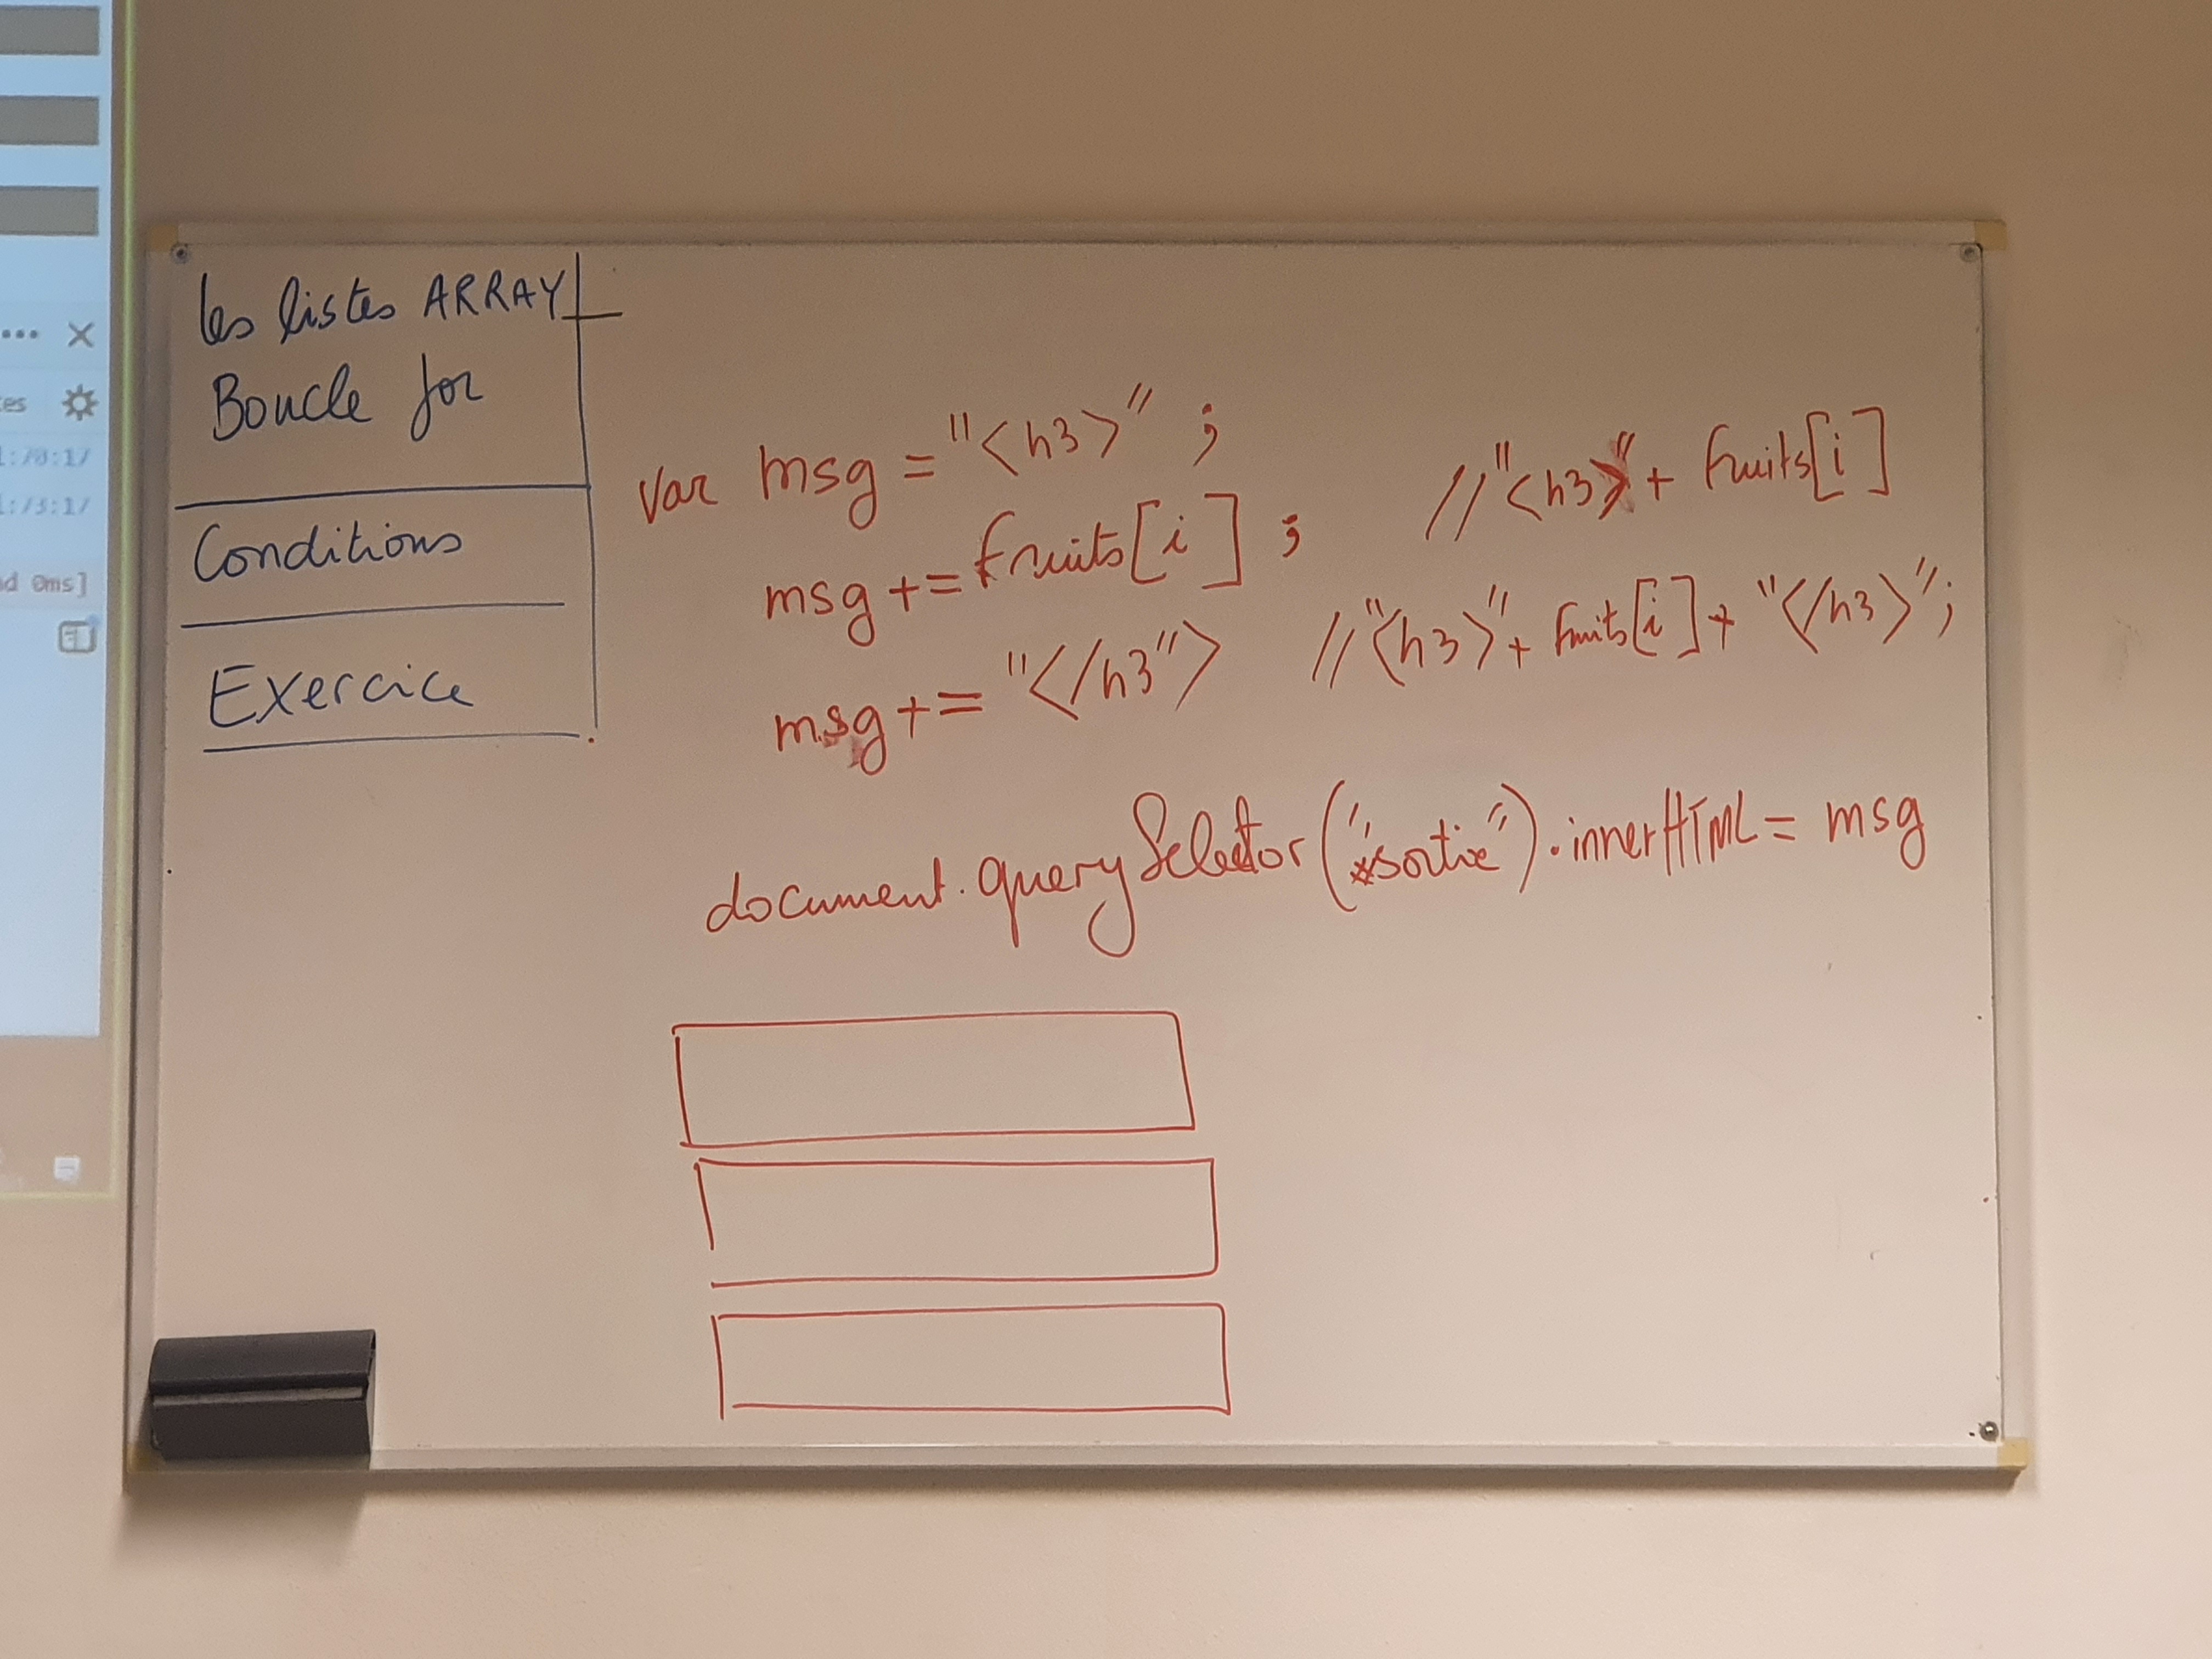 les listes ARRAY
Boucle for
Conditions
Exercice
var msg = "<h3>" ;
msg += fruits[i] ; // "<h3>" + fruits[i]
msg += "</h3"> // "<h3>" + fruits[i] + "</h3>";
document.querySelector("#sortie").innerHTML = msg
es
:70:17
:73:17
d 0ms]